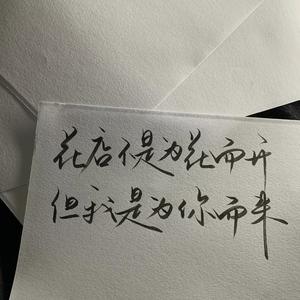 花店不是为花而开
但我是为你而来